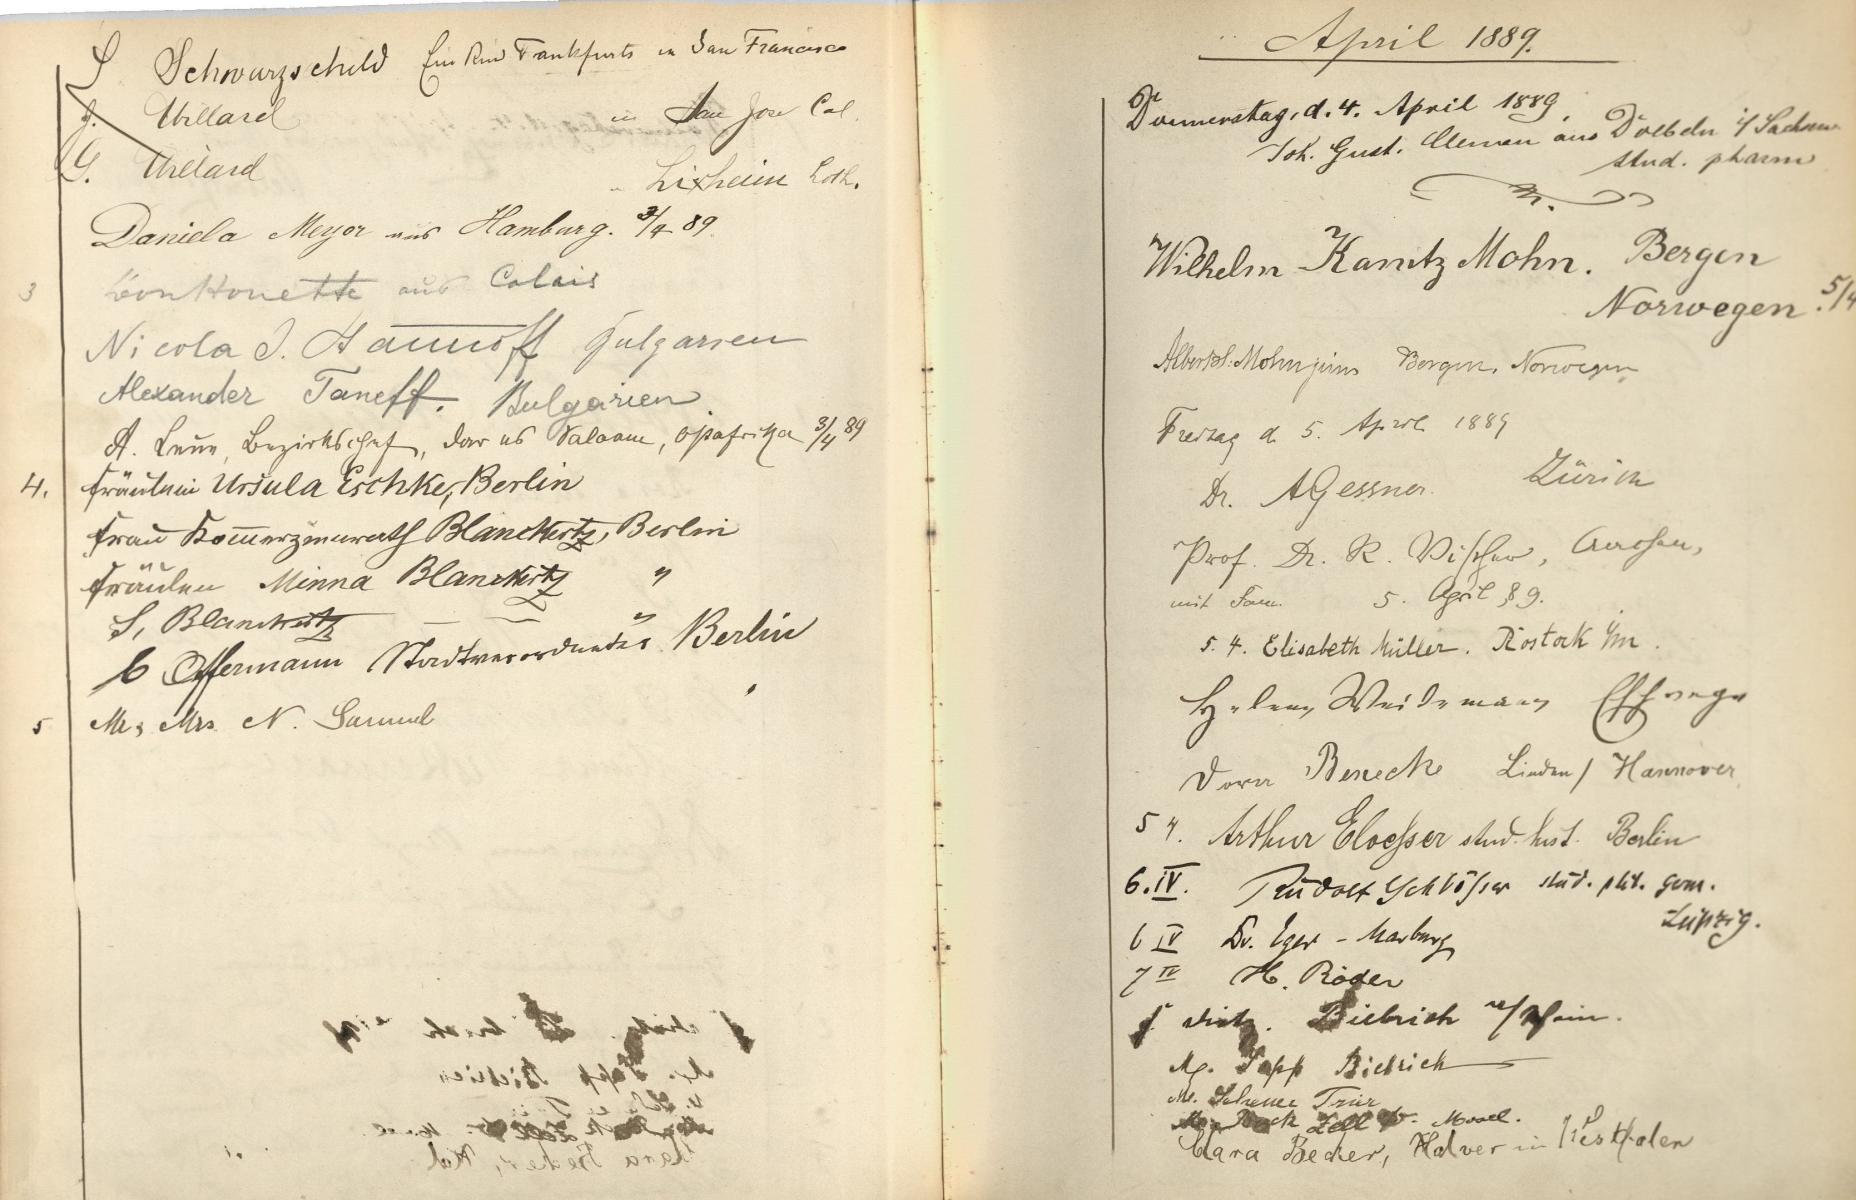 S Schwarzschild Ein Kind Frankfurts in San Francisco
J. Willard in San Jose Cal.
G. Willard " Lixheim Loth.
Daniela Meyer aus Hamburg. 3/4 89
3 aus Calais
Nicola J. Bulgarien
Alexander Taneff. Bulgarien
A. Leue, Bezirkschef, Dar es Salaam, Ostafrika 3/4 89
4. Fräulein Ursula Eschke, Berlin
Frau Kommerzienrath Blanckertz, Berlin
Fräulein Minna Blanckertz "
S, Blanckertz — "
C Offermann Stadtverordneter Berlin
5 Mr & Mrs N. Samuel "
April 1889.
Donnerstag, d. 4. April 1889.
Joh. Gust. Clemen aus Doebeln i/ Sachsen
stud. pharm
Wilhelm Kanitz Mohn. Bergen
Norwegen. 5/4
Albert Mohn junr Bergen, Norwegen
Freitag d 5. April 1889
Dr. A Gessner. Zürich
Prof. Dr. R. Vischer, Aachen,
mit Fam. 5. April 89.
5. 4. Elisabeth Müller. Rostock i/m.
Helene Weidemann Eschwege
Dora Benecke Linden / Hannover
5 4. Arthur Eloesser stud. hist. Berlin
6. IV. Rudolf Schlösser stud. phil. germ.
Leipzig.
6 IV Dr. Eger - Marburg
7 IV H. Röder
Biebrich a/Rhein.
Mg. Papp Biebrich
M. Trier
Beck Zell a. Mosel.
Clara Becker, Halver in Westfalen